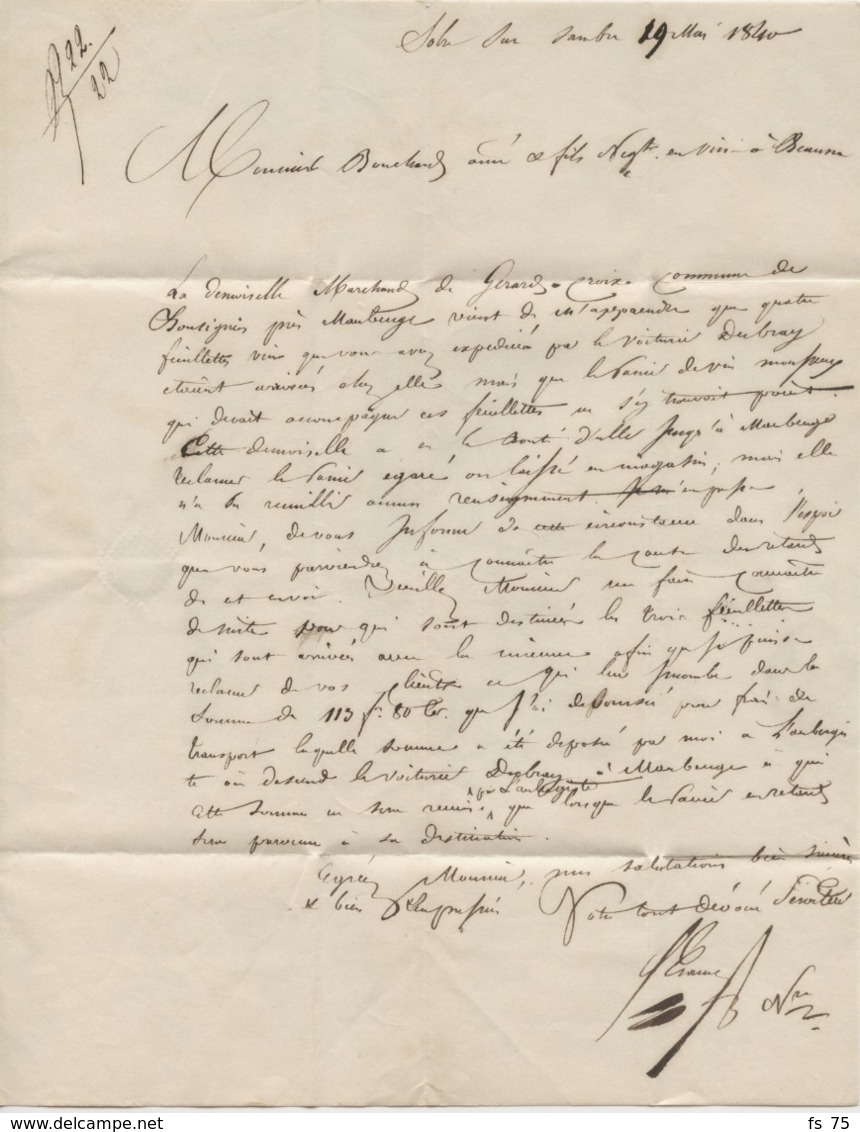 Solre sur Sambre 19 Mai 1840
22.
22
Monsieur Bouchard ainé & fils Negts. en vin à Beaune
La demoiselle Marchand de Gerard-Croix commune de
Bousignies près Maubeuge vient de m'apprendre que quatre
feuillettes vin que vous avez expédiées par le voiturié Dubray
étaient arrivées chez elle mais que le panié de vin mousseux
qui devait accompagner ces feuillettes ne s'y trouvait point.
Cette demoiselle a eu la bonté d'aller jusqu'à Maubeuge
reclamer le panié égaré ou laissé en magasin, mais elle
n'a pu recueillir aucun renseignement. Je m'empresse
Monsieur, de vous informer de cette circonstance dans l'espoir
que vous parviendrez à connaitre la cause du retard
de cet envoi. Veuillez Monsieur me faire connaitre
de suite pour qui sont destinées les trois feuillettes
qui sont arrivées avec la mienne afin que je puisse
reclamer de vos clients ce qui leur incombe dans la
somme de 113 fr. 80 c. que j'ai deboursé pour frais de
transport laquelle somme a été déposée par moi à l'aubergis
te où descend le voiturié Dubray à Maubeuge à qui
cette somme ne sera remise, par l'aubergiste que lorsque le panié en retard
sera parvenu à sa destination.
Agréez Monsieur, mes salutations bien sincères
& bien empressées Votre tout dévoué serviteur
Nre
fs 75